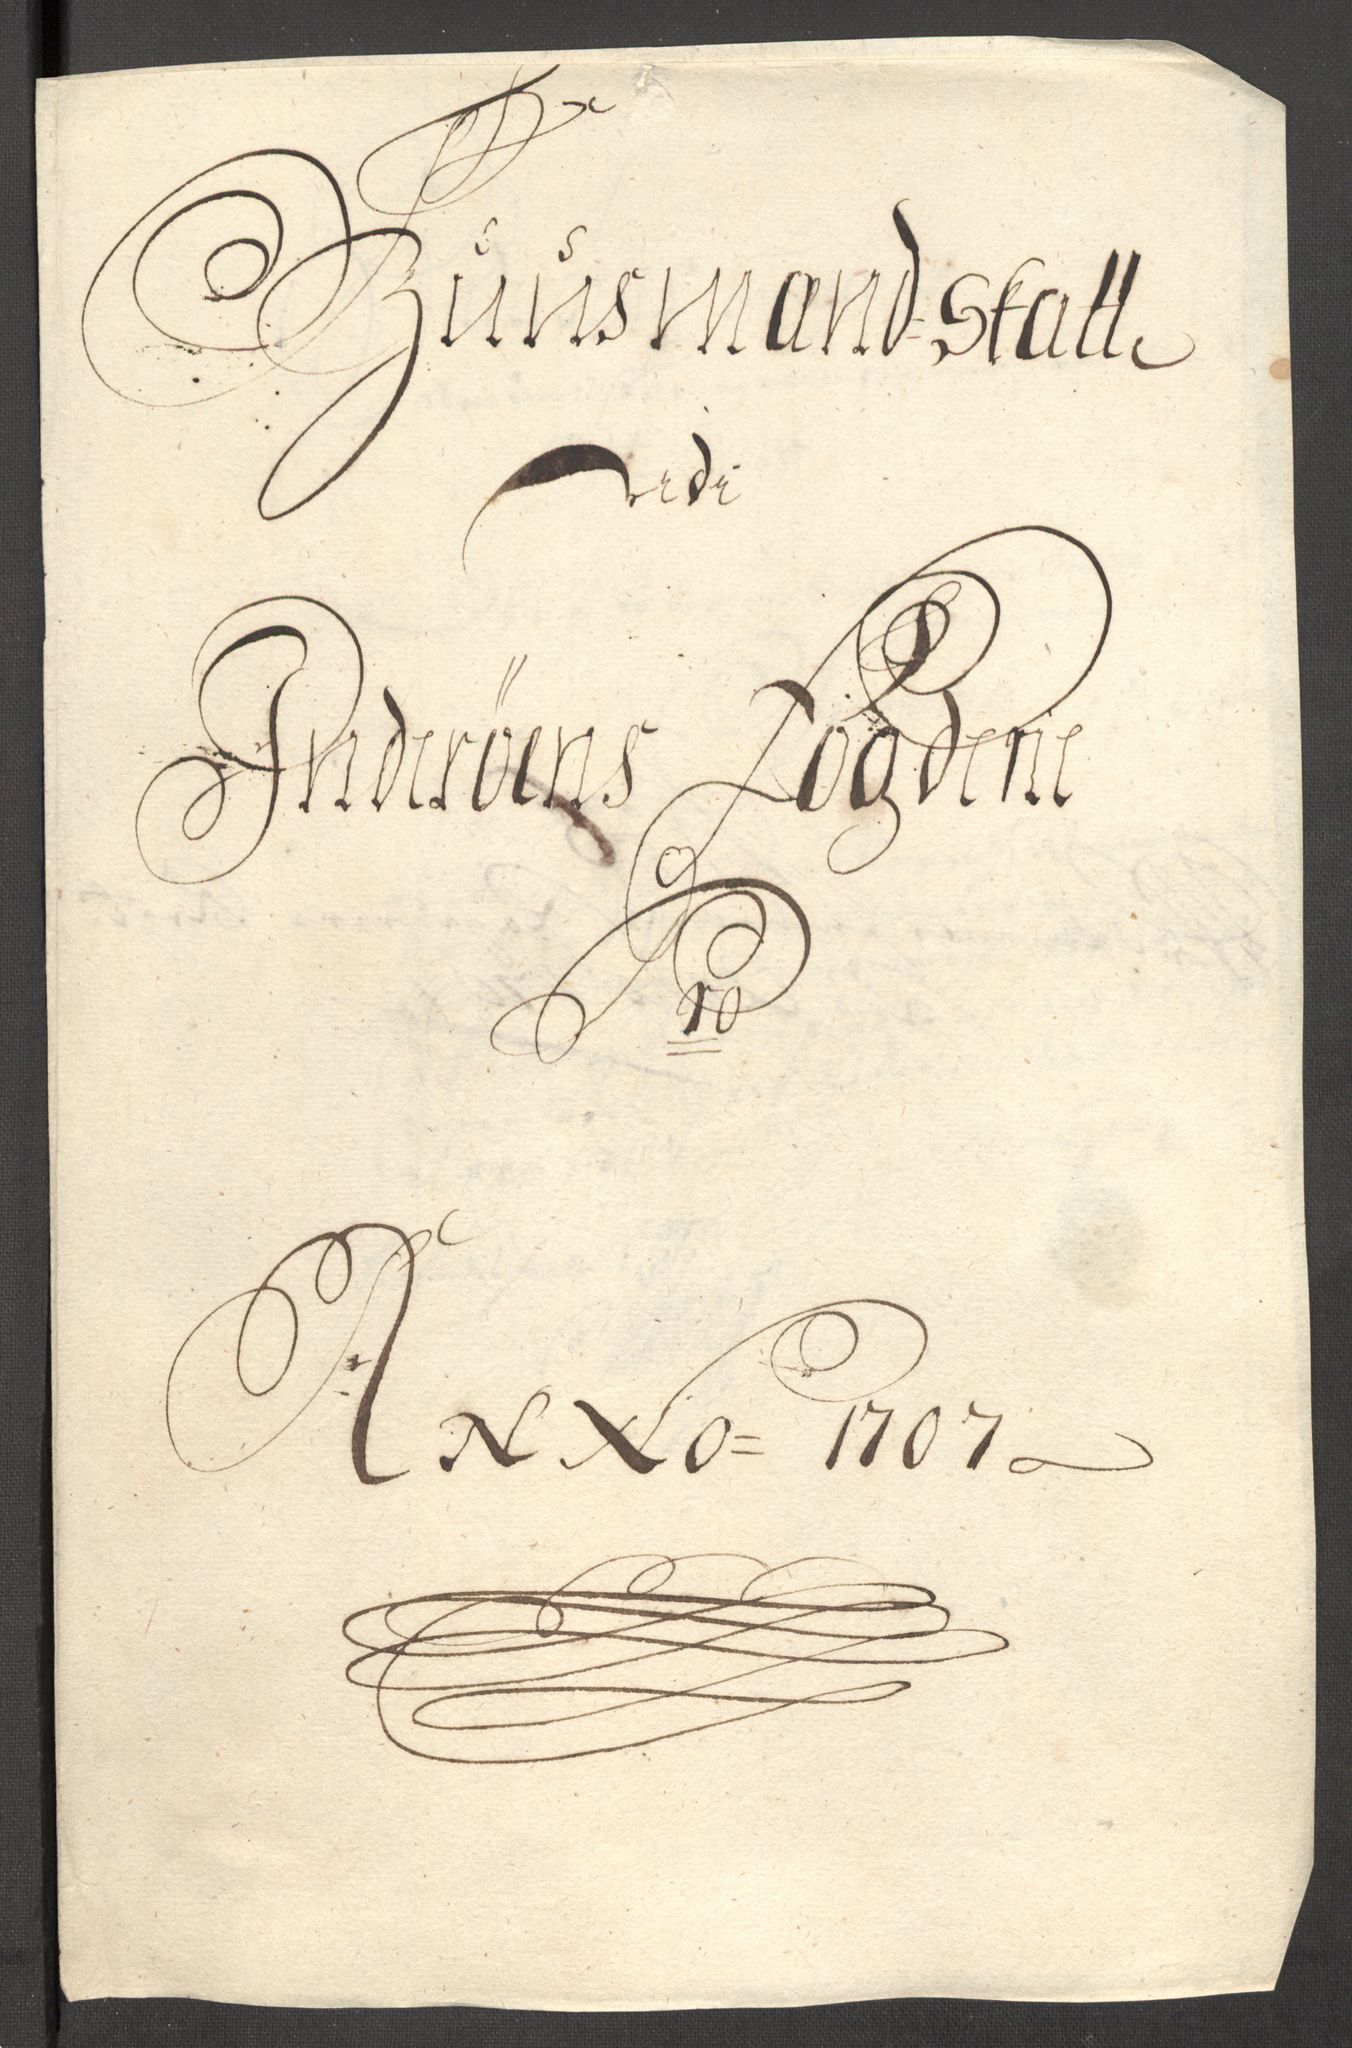 Huusmand-Skatt
Udi
Inderöens Fogderie
Pro
Anno= 1707